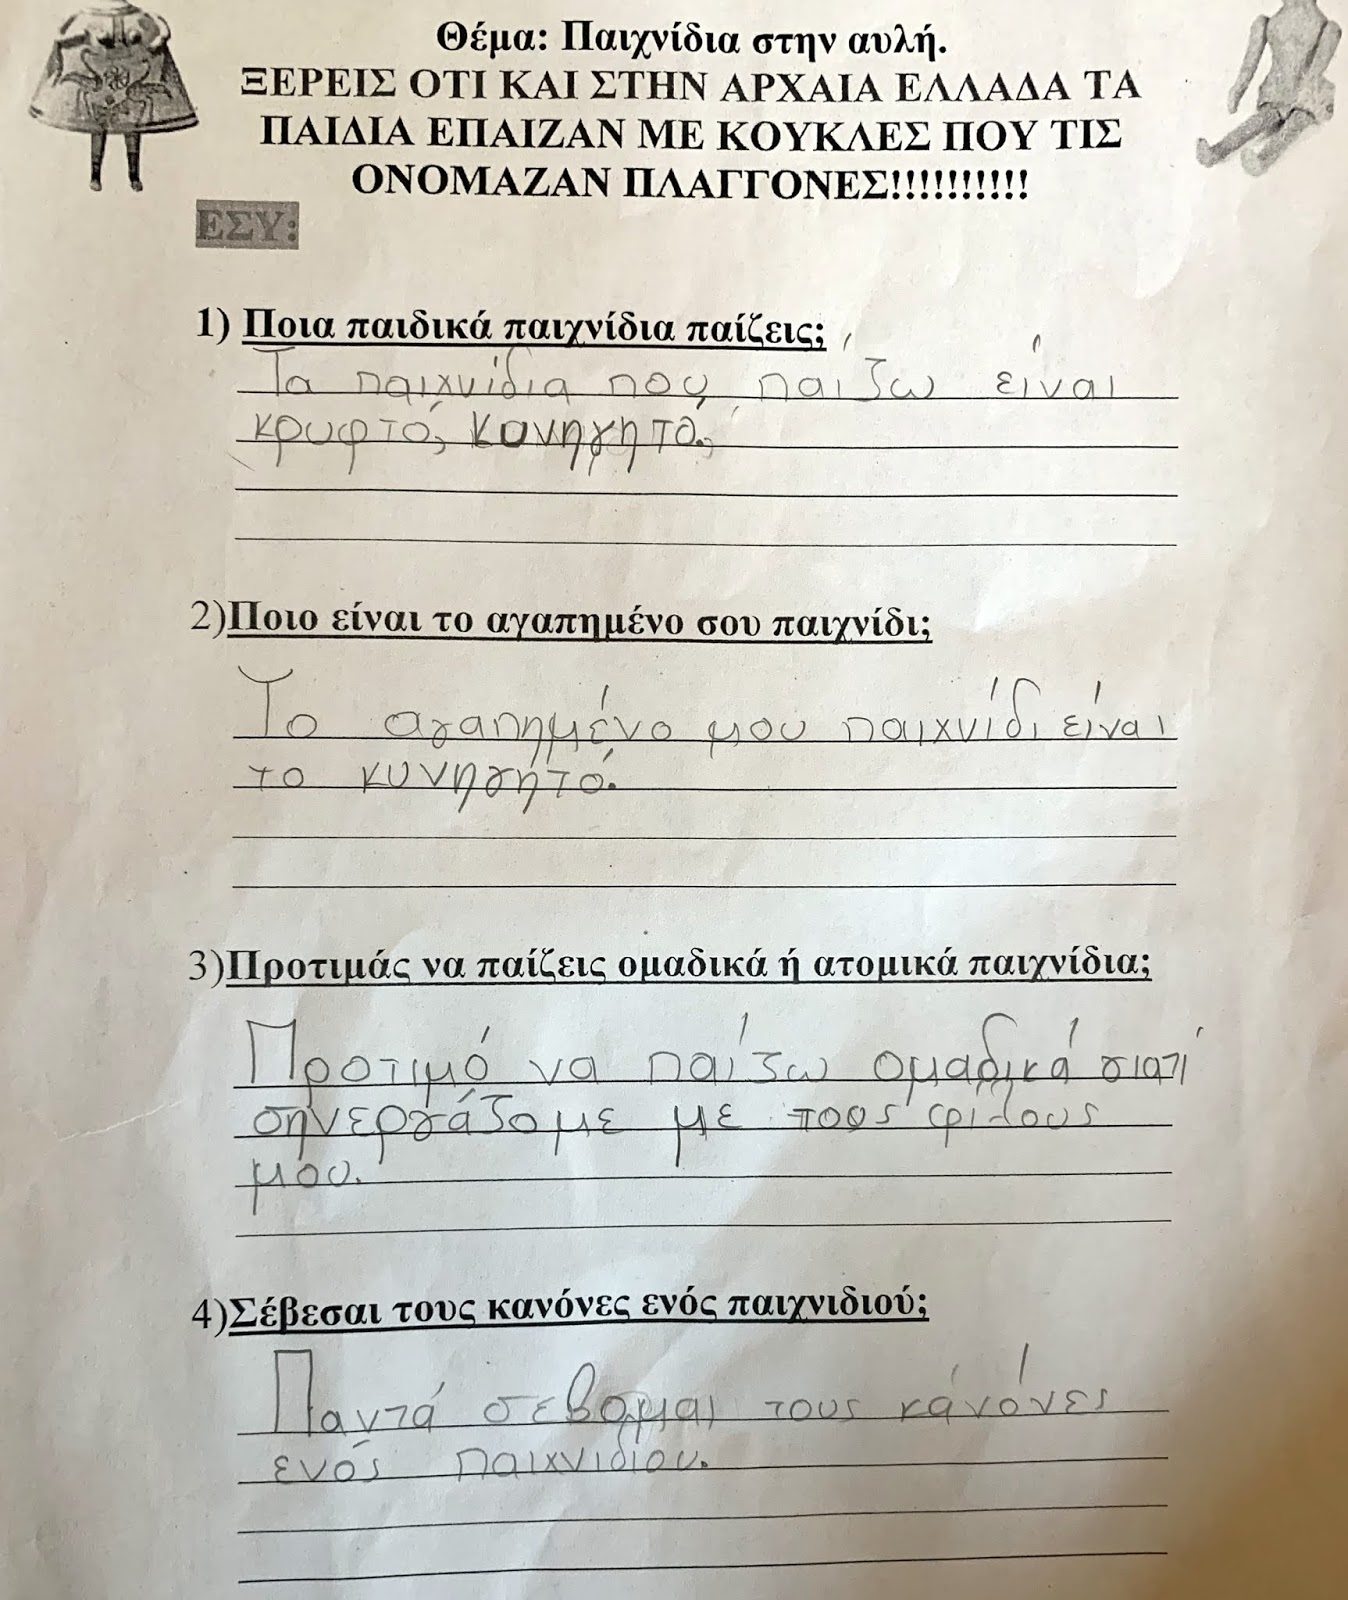 Θέμα: Παιχνίδια στην αυλή.
ΞΕΡΕΙΣ ΟΤΙ ΚΑΙ ΣΤΗΝ ΑΡΧΑΙΑ ΕΛΛΑΔΑ ΤΑ
ΠΑΙΔΙΑ ΕΠΑΙΖΑΝ ΜΕ ΚΟΥΚΛΕΣ ΠΟΥ ΤΙΣ
ΟΝΟΜΑΖΑΝ ΠΛΑΓΓΟΝΕΣ!!!!!!!!!!
ΕΣΥ:
1) Ποια παιδικά παιχνίδια παίζεις;
Τα παιχνίδια που παίζω είναι
κρυφτό, κυνηγητό.
2)Ποιο είναι το αγαπημένο σου παιχνίδι;
Το αγαπημένο μου παιχνίδι είναι
το κυνηγητό.
3)Προτιμάς να παίζεις ομαδικά ή ατομικά παιχνίδια;
Προτιμό να παίζω ομαδικά γιατί
σηνεργάζομε με τους φίλους
μου.
4)Σέβεσαι τους κανόνες ενός παιχνιδιού;
Παντά σεβομαι τους κάνόνες
ενός παιχνιδιου.